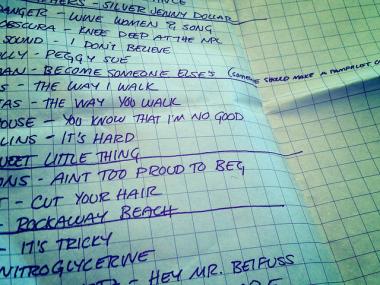 THERS - SILVER JENNY DOLLAR
DANGER - WINE WOMEN & SONG
OBSCURA - KNEE DEEP AT THE NPL
SOUND - I DON'T BELIEVE
LLY - PEGGY SUE
MAN - BECOME SOMEONE ELSE'S (SOMEONE SHOULD MAKE A PAMPHLET O
S - THE WAY I WALK
TAS - THE WAY YOU WALK
OUSE - YOU KNOW THAT I'M NO GOOD
LLINS - IT'S HARD
SWEET LITTLE THING
ONS - AINT TOO PROUD TO BEG
T - CUT YOUR HAIR
- ROCKAWAY BEACH
- IT'S TRICKY
NITROGLYCERINE
- HEY MR. BELFUSS